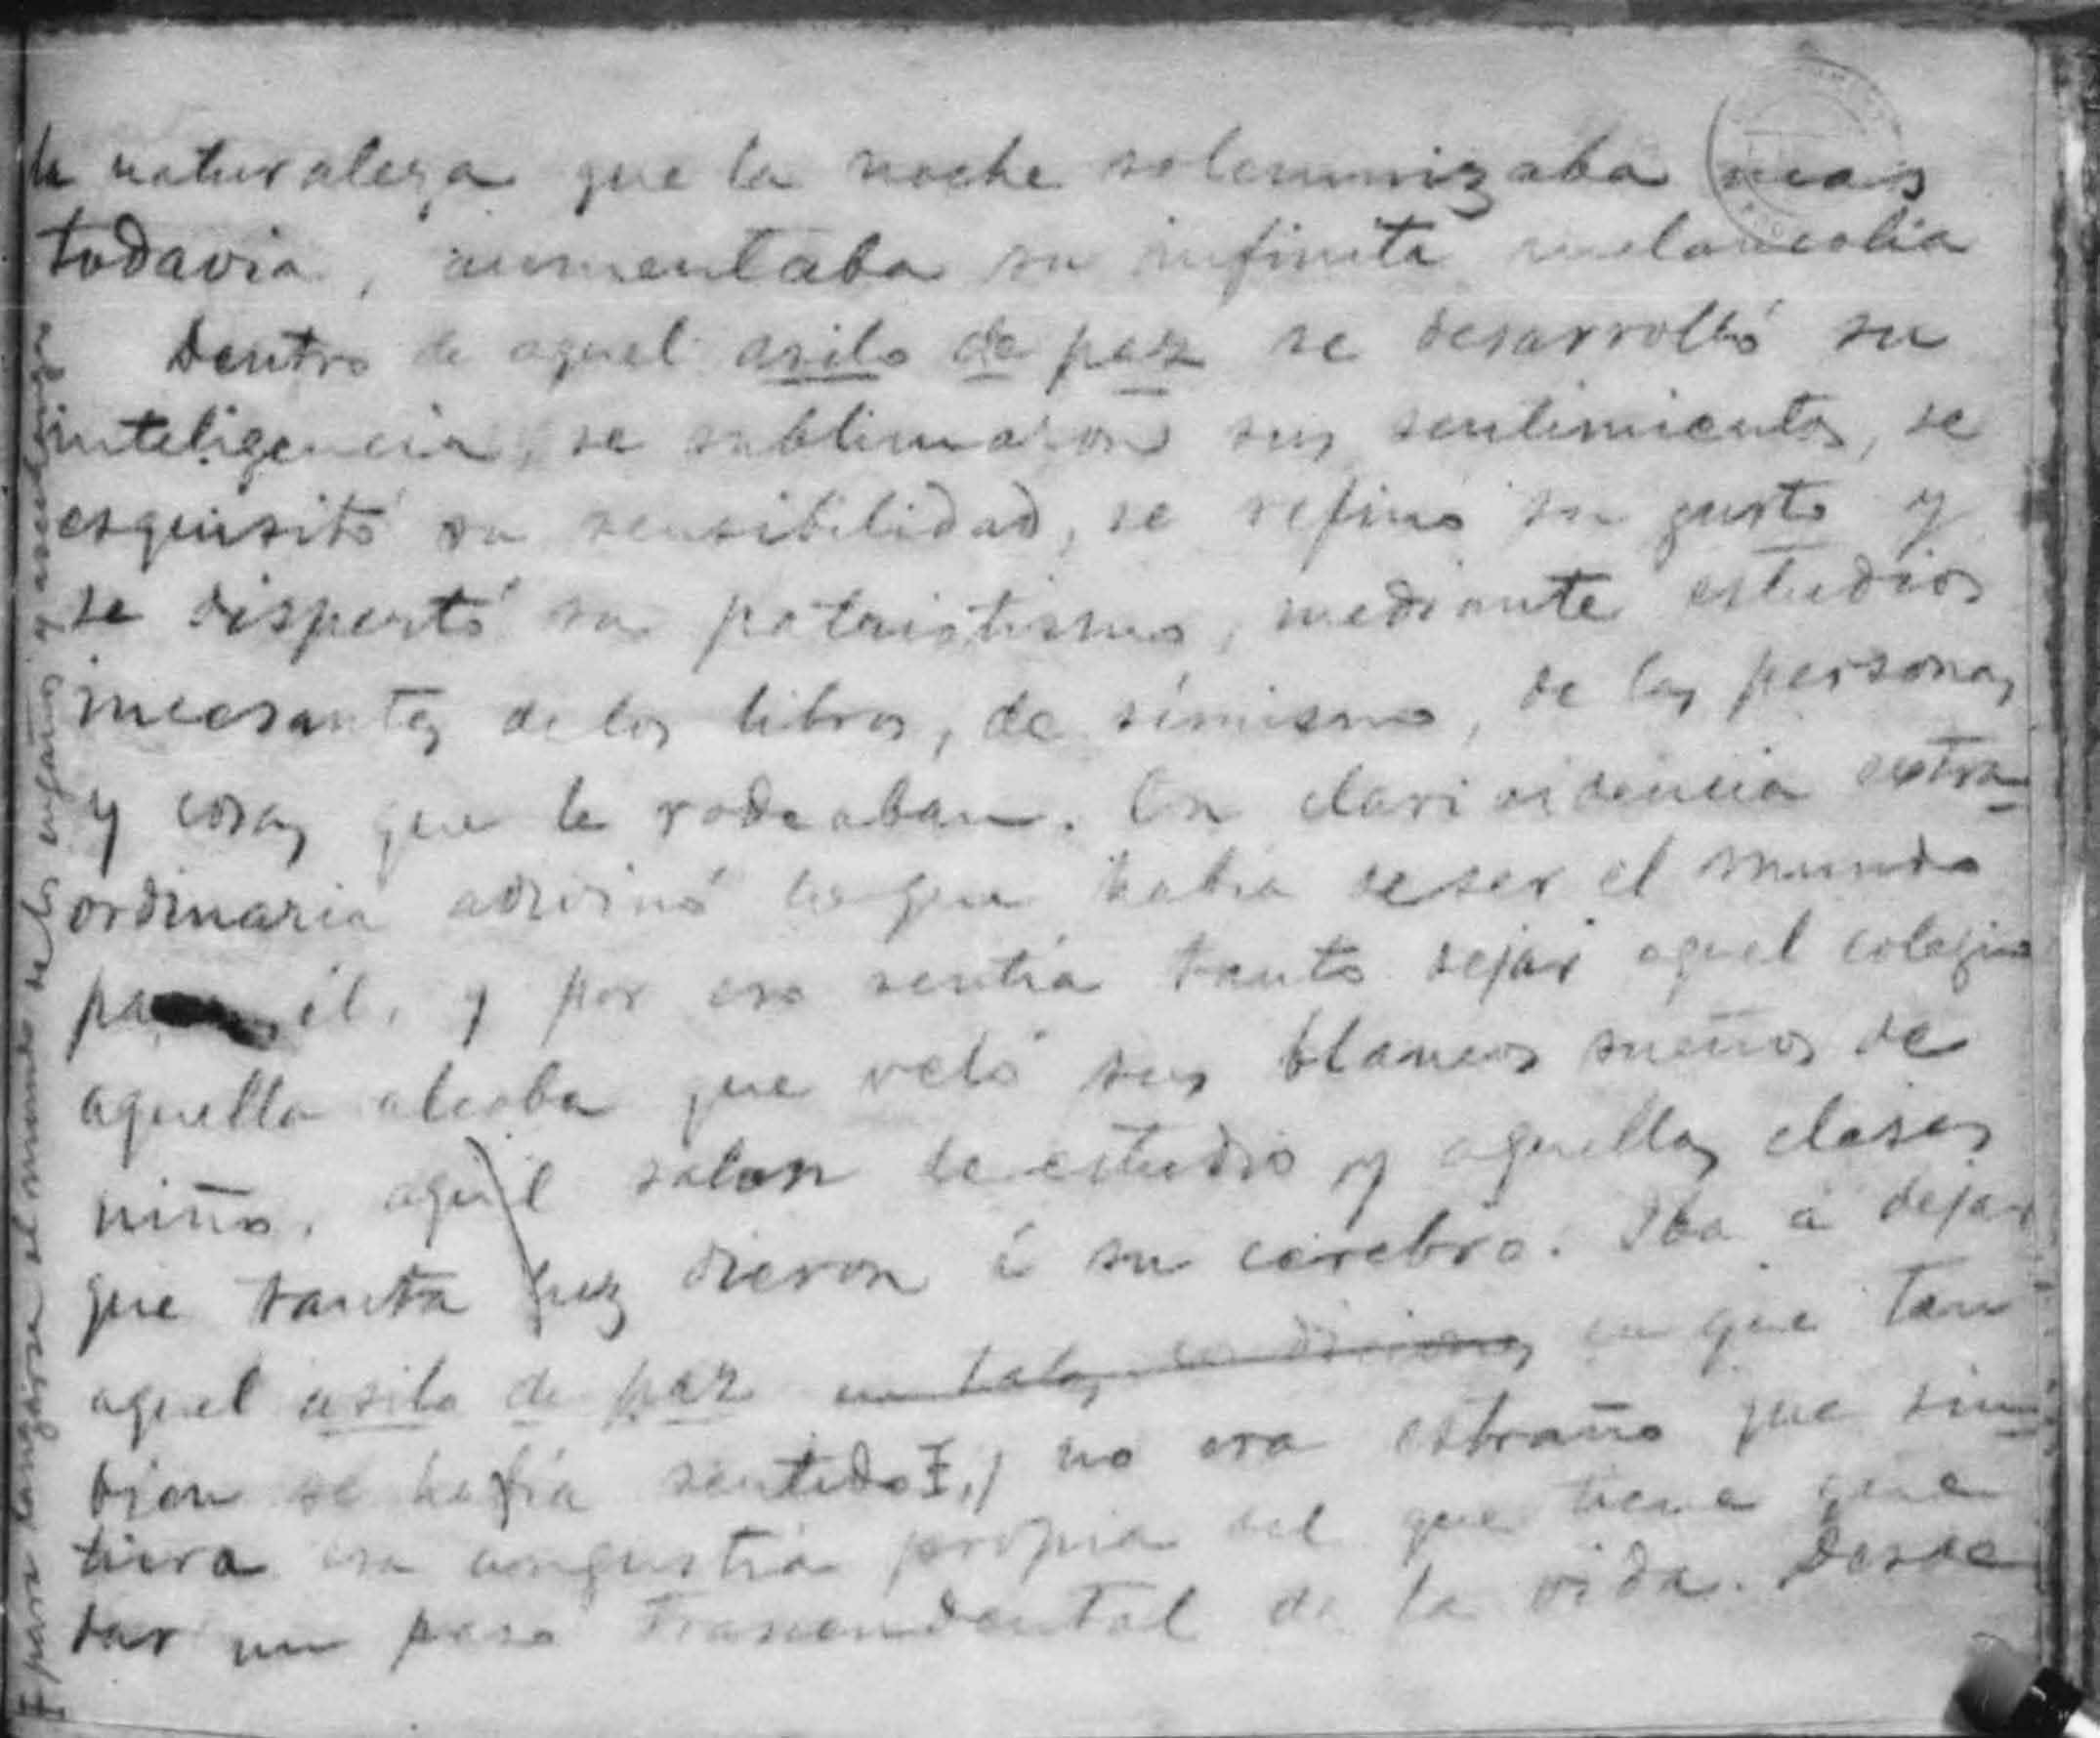 la naturaleza que la noche solemnizaba mas
todavia, aumentaba su infinita melancolia
Dentro de aquel asilo de paz se desarrolló su
inteligencia, se sublimaron sus sentimientos, se
esquisitó su sensibilidad, se refinó su gusto y
se dispertó su patriotismo, mediante estudios
incesantes de los libros, de símismo, de las personas
y cosas que le rodeaban. Con clarividencia extra-
ordinaria adivinó lo que habia de ser el mundo
para él, y por eso sentía tanto dejar aquel colegio
aquella alcoba que veló sus blancos sueños de
niño, aquel salon de estudio y aquellas clases
que tanta luz dieron á su cerebro. Iba á dejar
aquel asilo de paz en tales condiciones en que tan
bien se habia sentido Ŧ, no era estraño que sin-
tiera esa angustia propia del que tiene que
dar un paso trascendental de la vida. Desde
Ŧ para lanzarse al mundo de los engaños y